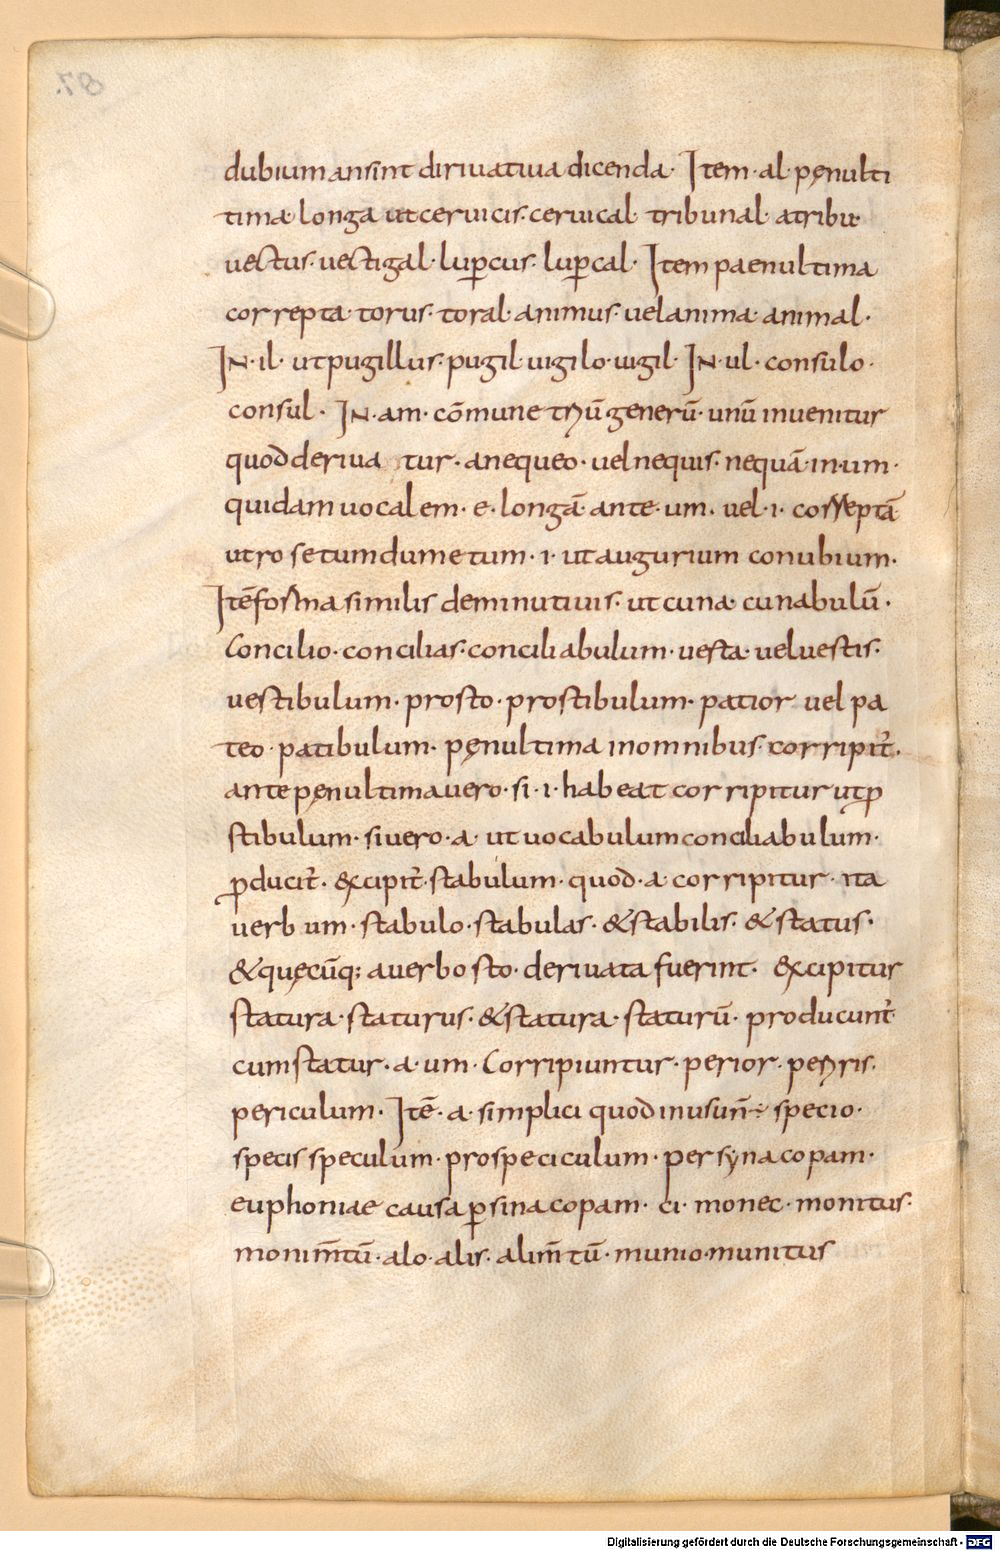 dubium an sint dirivativa dicenda· Item·al·pęnulti
tima longa ut cervicis·cervical· tribunal· a tribu
vectus·vectigal·luꝑcus·luꝑcal· Item paenultima
correpta· torus·toral·animus·vel anima·animal·
IN·il· ut pugillus·pugil·vigilo·vigil· IN·ul·consulo·
consul· IN·am·cōmune triū generū·unū invenitur
quod deriva tur·a nequeo·vel nequis·nequā·in·um·
quidam vocalem·e·longā·ante·um·vel·i·correptā
ut rosetum dumetum·i·ut augurium conubium·
Itē forma similis deminutivis·ut cuna·cunabulū·
Concilio·concilias·conciliabulum·vesta·vel vestis·
vestibulum·prosto·prostibulum·patior vel pa
teo·patibulum·pęnultima in omnibus·corripit̄·
ante pęnultima vero·si·i·habeat corripitur ut ꝓ
stibulum·si vero·a·ut vocabulum conciliabulum·
ꝓducit̄·excipit̄·stabulum·quod·a·corripitur·ita
verbum·stabulo·stabulas·&stabilis·&status·
&quęcūq; a verbo sto·derivata fuerint· excipitur
statura·staturus·&statura·staturū·producunt̄
cum statur·a·um·Corripiuntur·perior·peryris·
periculum· Itē·a·simplici quod in usu n̄ ÷ specio·
specis speculum·prospeciculum·per synacopam·
euphoniae causa ꝑ sinacopam·ci·monec·monitus·
monim̄tū·alo·alis·alim̄tū·munio·munitus
87.
Digitalisierung gefördert durch die Deutsche Forschungsgemeinschaft - DFG